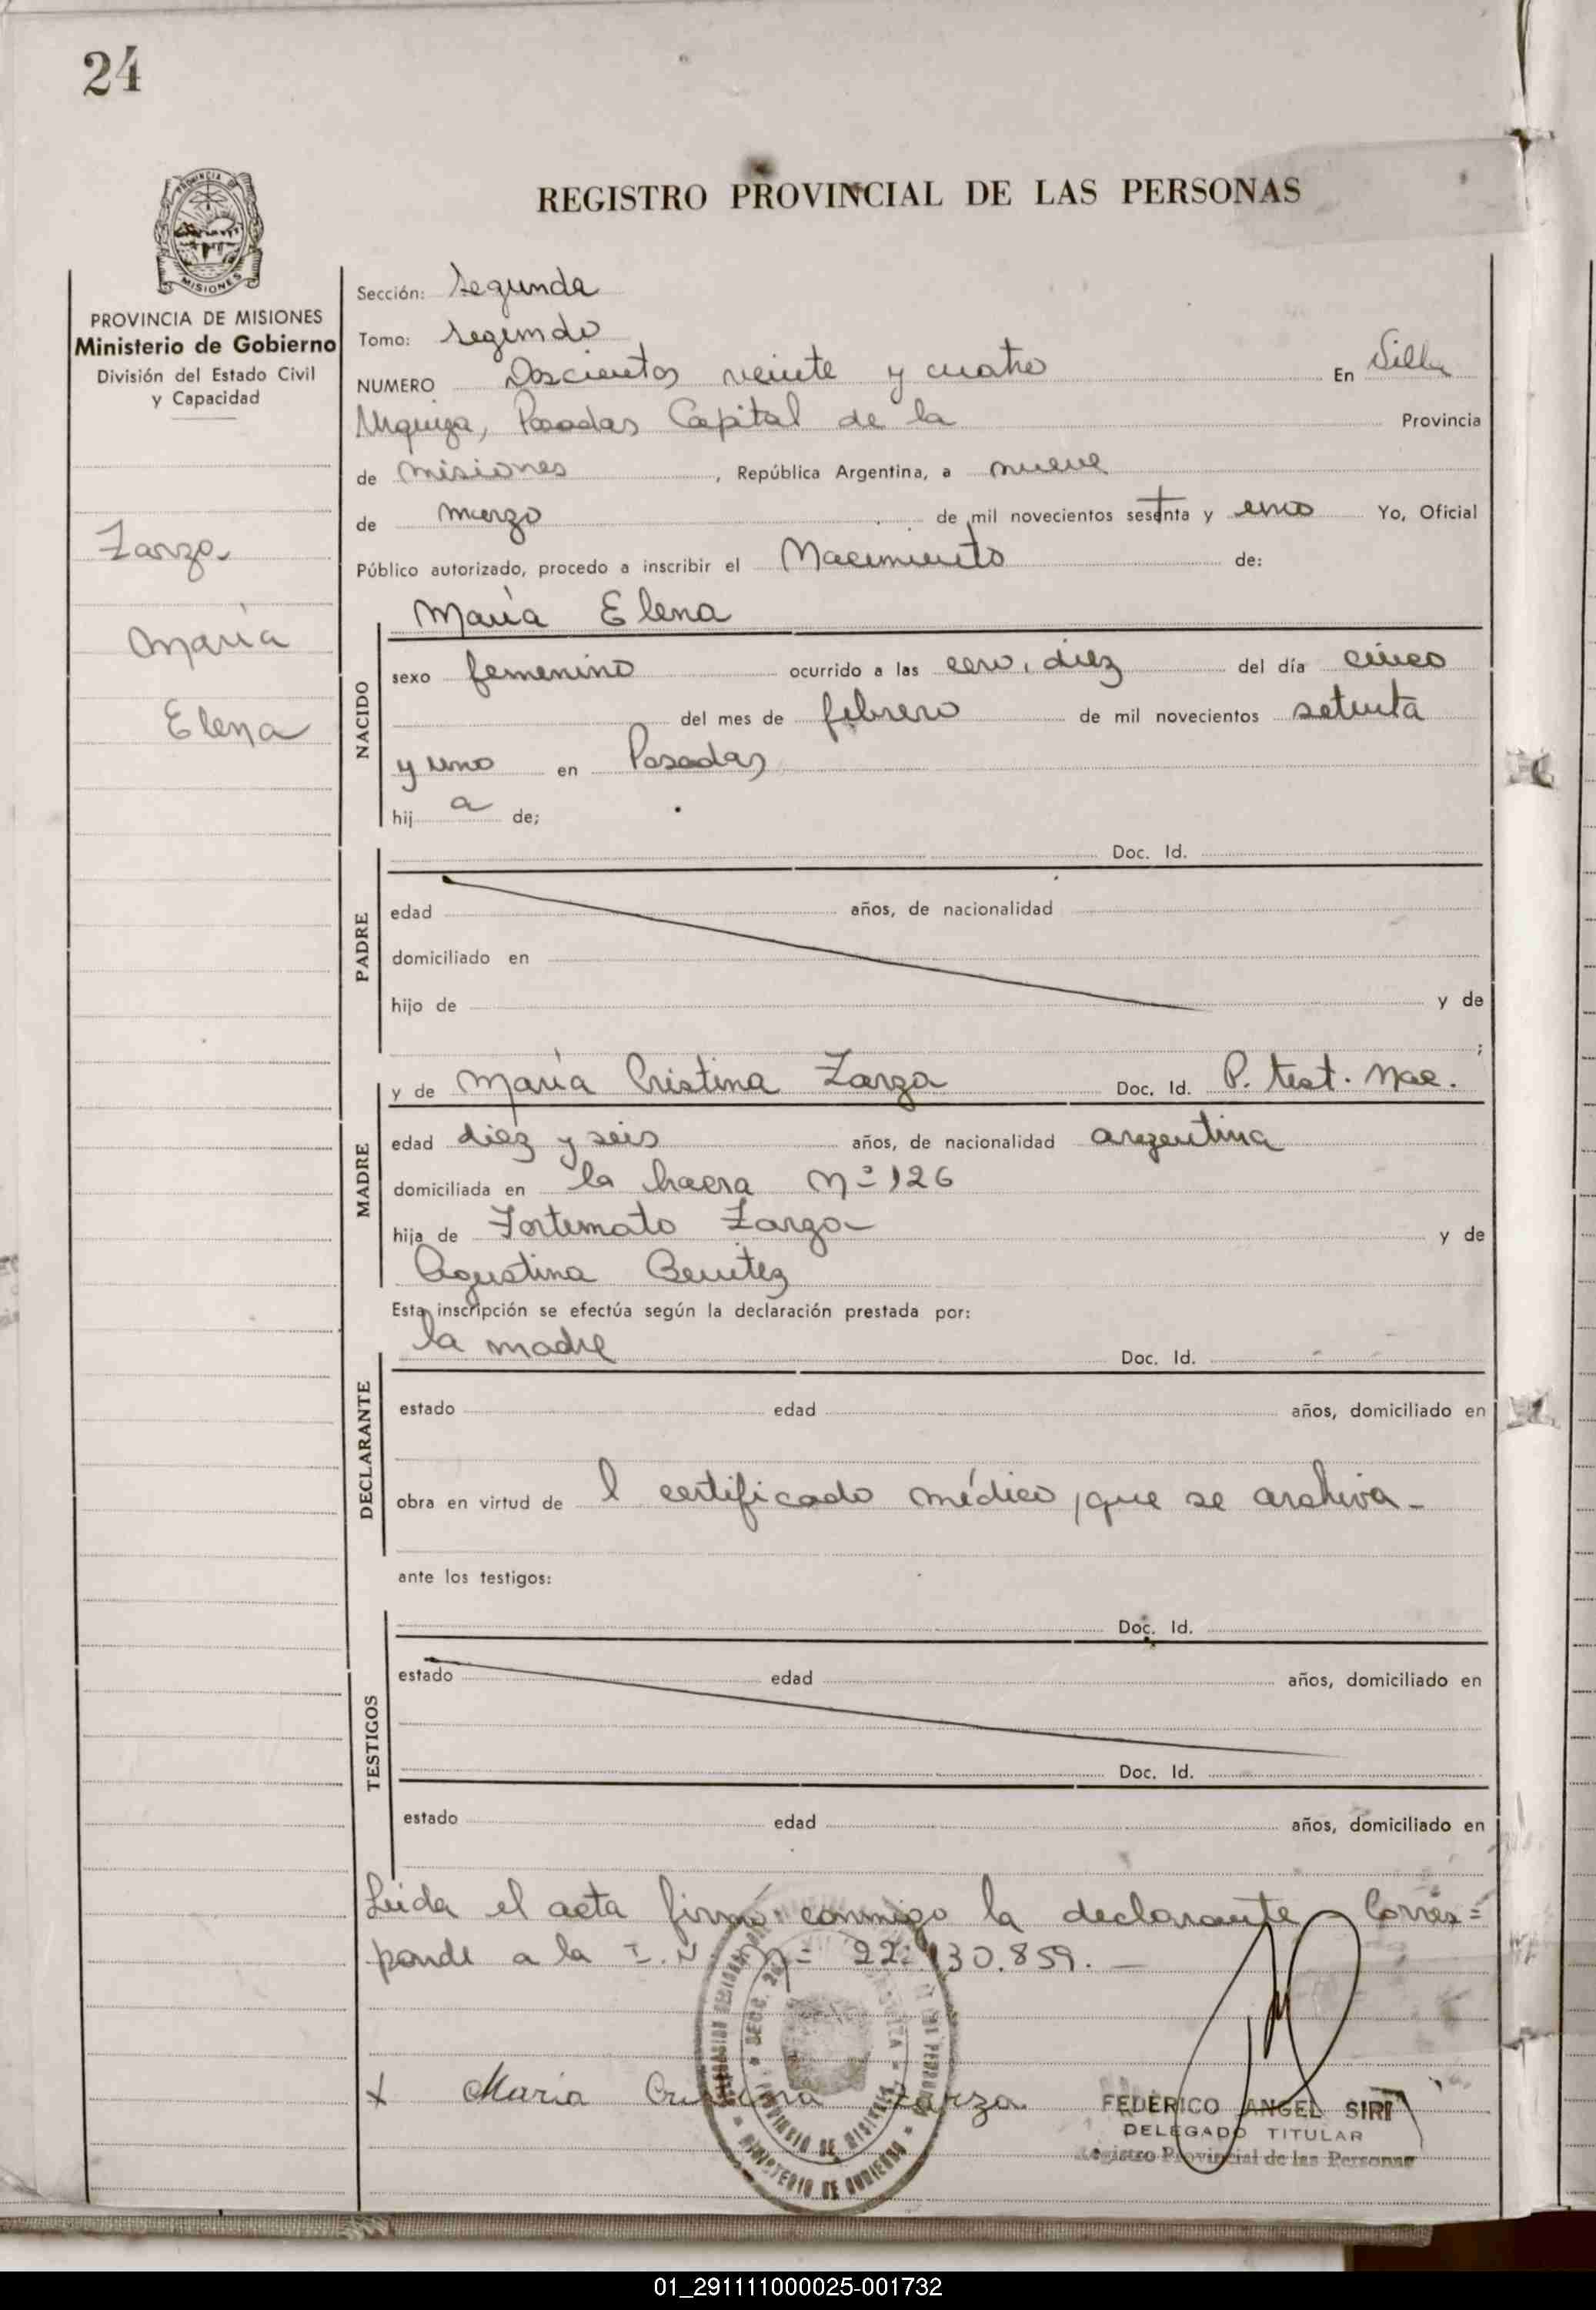 24
REGISTRO PROVINCIAL DE LAS PERSONAS
PROVINCIA DE
MISIONES
PROVINCIA DE MISIONES
Ministerio de Gobierno
División del Estado Civil
y Capacidad
Zarza
María
Elena
Sección: Segunda
Tomo: Segundo
NUMERO Doscientos veinte y cuatro En Villa
Urquiza, Posadas Capital de la Provincia
de Misiones, República Argentina, a nueve
de marzo de mil novecientos sesenta y uno Yo, Oficial
Público autorizado, procedo a inscribir el Nacimiento de:
María Elena
NACIDO
sexo femenino ocurrido a las cero, diez del día cinco
del mes de febrero de mil novecientos setenta
y uno en Posadas
hij a de;
PADRE
Doc. Id.
edad años, de nacionalidad
domiciliado en
hijo de y de
;
MADRE
y de María Cristina Zarza Doc. Id. P. test. Nac.
edad diez y seis años, de nacionalidad argentina
domiciliada en la N° 126
hija de Fortunato Zarza y de
Agustina Benitez
Esta inscripción se efectúa según la declaración prestada por:
DECLARANTE
la madre Doc. Id.
estado edad años, domiciliado en
obra en virtud de l certificado médico, que se archiva-
ante los testigos:
TESTIGOS
Doc. Id.
estado edad años, domiciliado en
Doc. Id.
estado edad años, domiciliado en
Leida el acta firmó conmigo la declarante Corres=
ponde a la I. N N= 22: 130.859. —
x María Cristina Zarza
SECC. 2a
PROVINCIA DE MISIONES
MINISTERIO DE GOBIERNO
FEDERICO ANGEL SIRI
DELEGADO TITULAR
Registro Provincial de las Personas
01_291111000025-001732